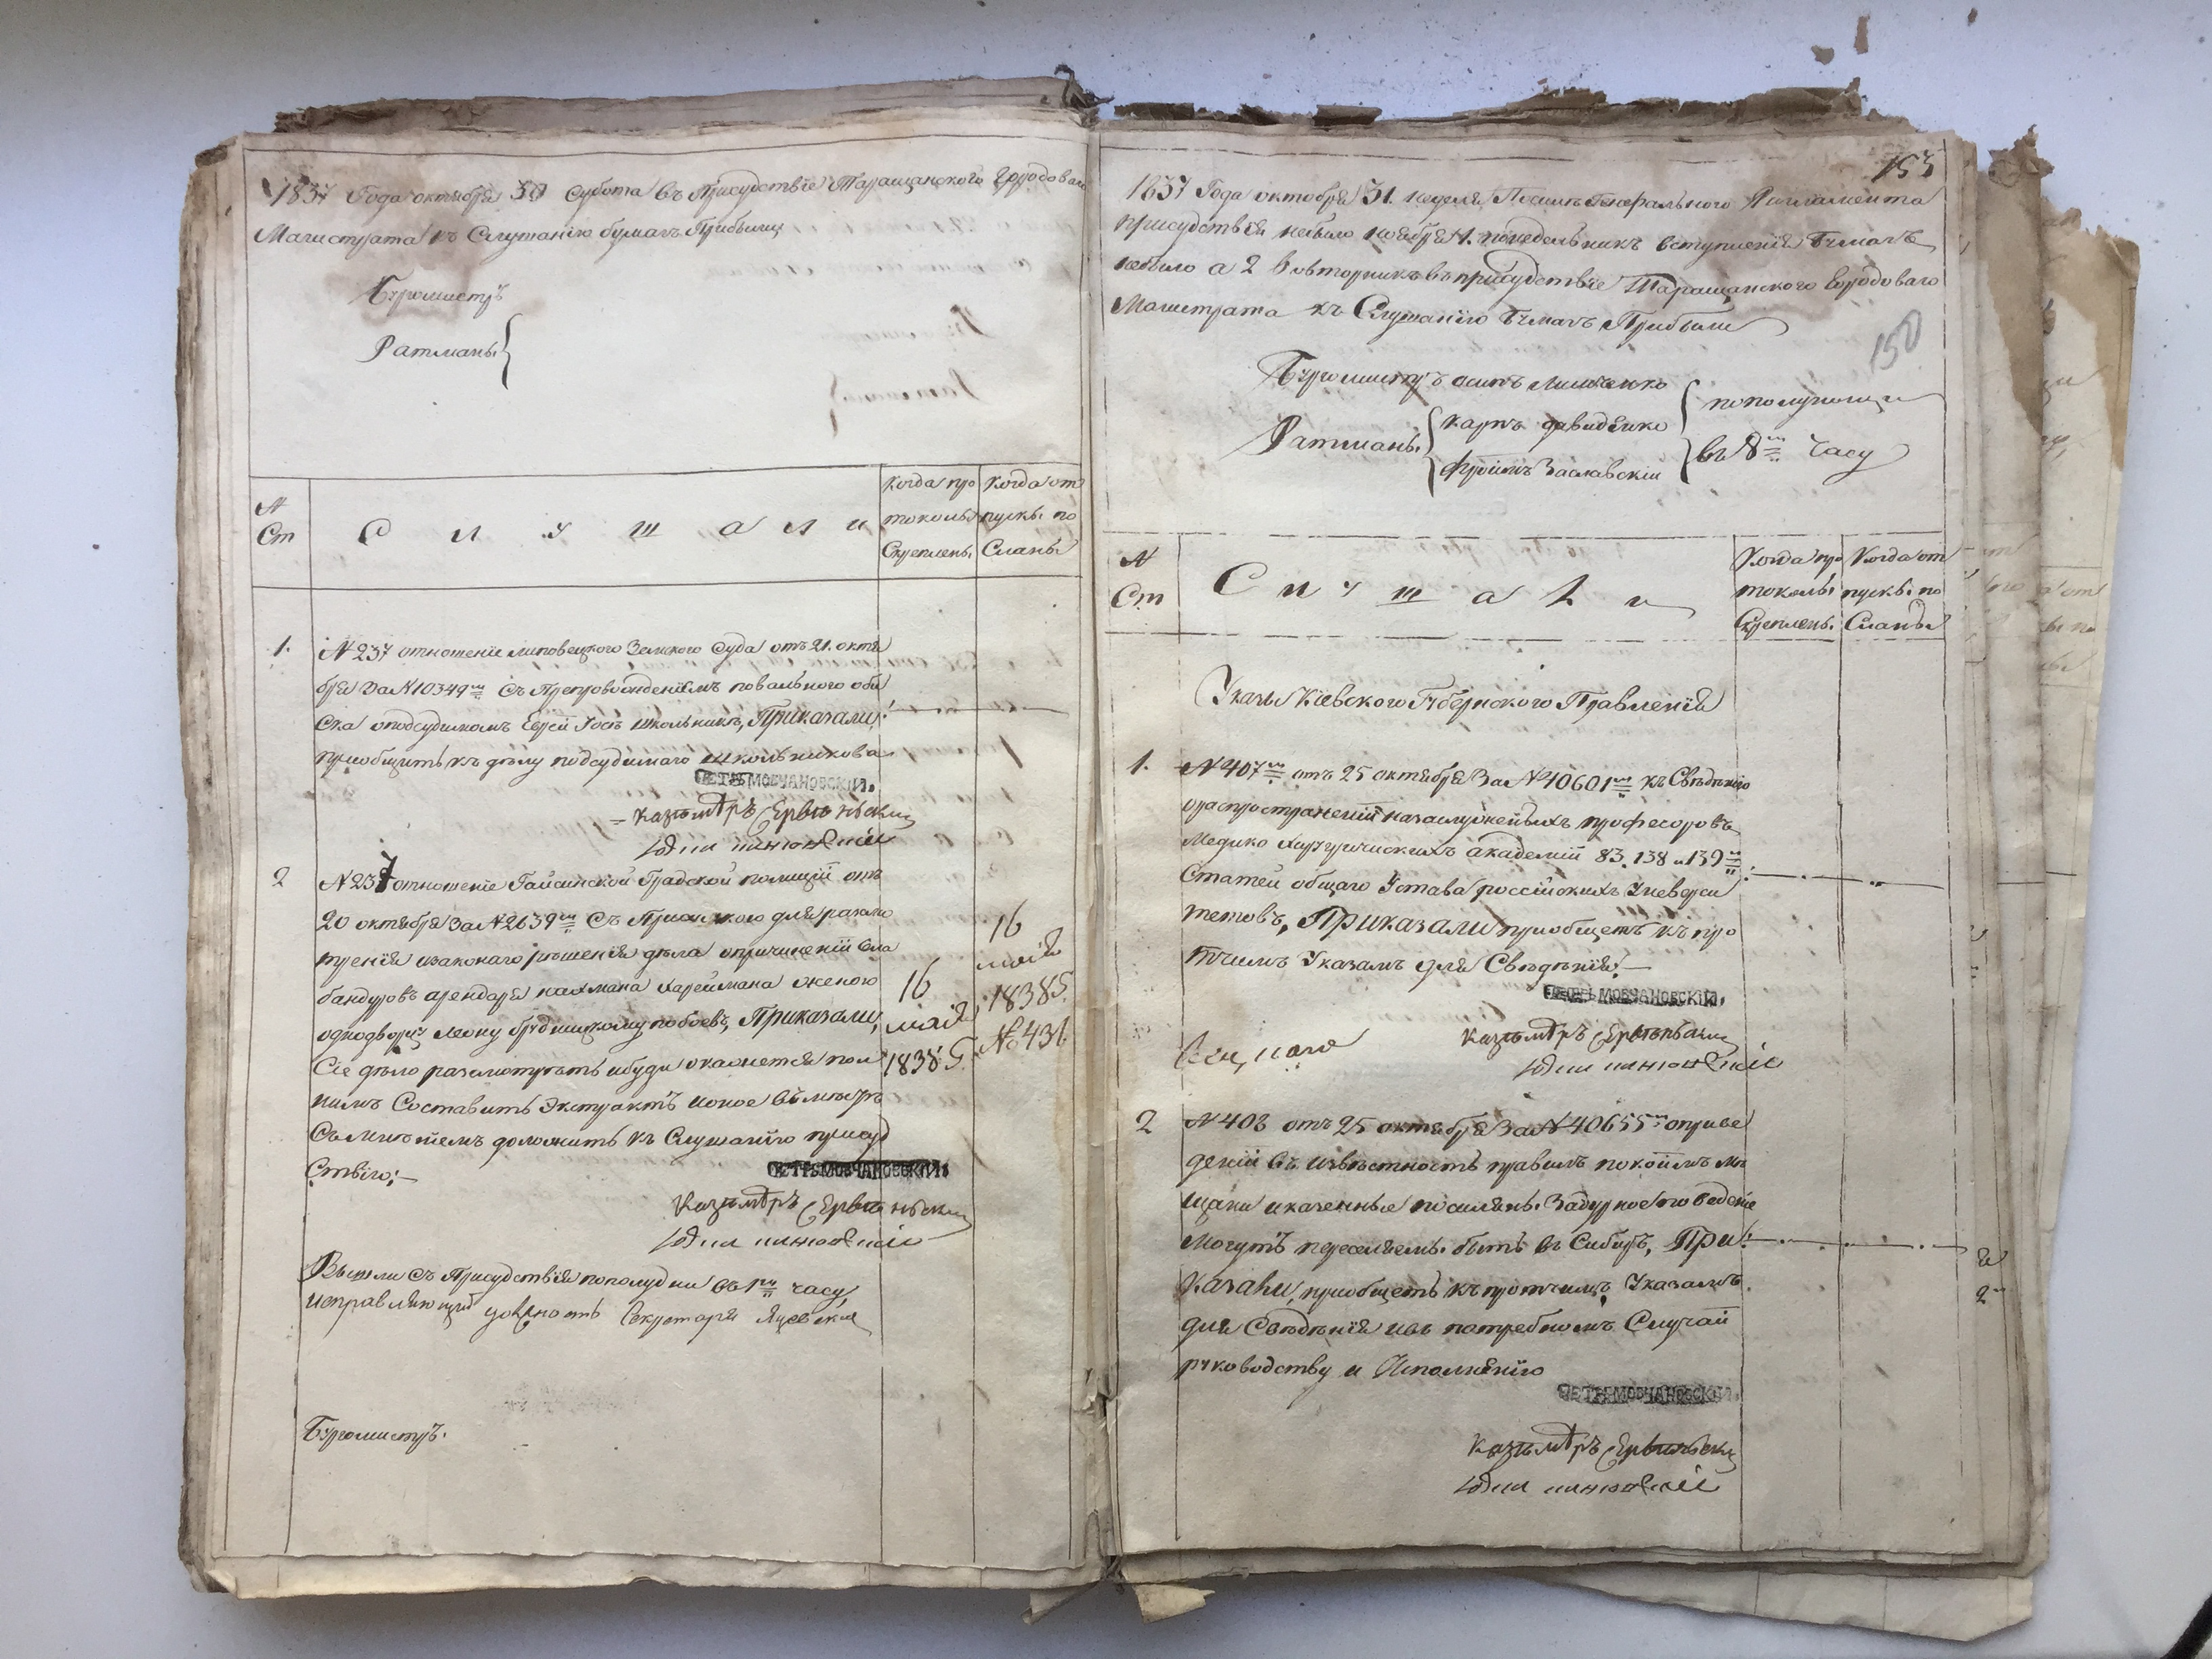 1837 Года октября 30 субота въ Присудствіе Таращанского Городоваго
Магистрата къ Слушанію бумагъ Прибыли
Бургомистръ
Ратманы
N
Ст
С л у ш а л и
Когда про
токолы
Скреплены
Когда от
пуски по
Сланы
1. N 237 отношеніе липовецкого Земского Суда отъ 21. октя
бря за N 10349 съ Препровожденіемъ повального обы
ска о подсудимомъ Еврей Школьнике, Приказали:
приобщить къ делу подсудимаго школьникова
ПЕТРЪ МОВЧАНОВСКІЙ.
2 N 237 отношеніе Гайсинской Градской полиціи отъ
20 октября за N 2639 съ для разсмо
тренія и законаго решенія дела о причиненіи
арендаря нахмана хареймана женою
однодворцу Леону побоевъ, Приказали,
Сіе дело разсмотреть и буде окажется пол
нымъ Составить Экстрактъ и оное
доложить къ Слушанію присуд
ствію:—
16
мая
1838 Г.
16
мая
1838 Г.
№ 436
ПЕТРЪ МОВЧАНОВСКІЙ
Вышли съ Присудствія пополудни въ 1 часу
исправляющій должность Секретаря
Бургомистръ.
153
1837 Года октября 31. неделя Посилъ Генерального Регламента
присудствія небыло ноября 1. понедельникъ вступленія бумагъ
небыло а 2 во вторникъ въ присудствіе Таращанского Городоваго
Магистрата къ Слушанію бумагъ Прибыли
150
Бургомистръ осипъ
Ратманы
карпъ давиденко
Фроимъ Заславскій
пополуночи
въ 8 часу
N
Ст
С л у ш а л и
Когда про
токолы
Скреплены.
Когда от
пуски по
Сланы
Указы Кіевского Губернского Правленія
1. N 407 отъ 25 октября за N 40601 къ Сведенію
о распространеніи на заслуженыхъ професоровъ
Медико Хирургическихъ академій 83. 138 и 139
Статей общаго Устава россійскихъ Униeверси
тетовъ, Приказали приобщить къ про
тчимъ Указамъ для Сведенія:—
ПЕТРЪ МОВЧАНОВСКІЙ.
2 N 408 отъ 25 октября за N 40655 о приве
деніи въ известность правилъ по коимъ ме
щани и казенные поселяны. За дурное поведеніе
Могутъ переселяемы. быть въ Сибирь, При:
казали, приобщить къ протчимъ Указамъ
для Сведенія и въ потребномъ Случаи
руководству и Исполненію
ПЕТРЪ МОВЧАНОВСКІЙ.